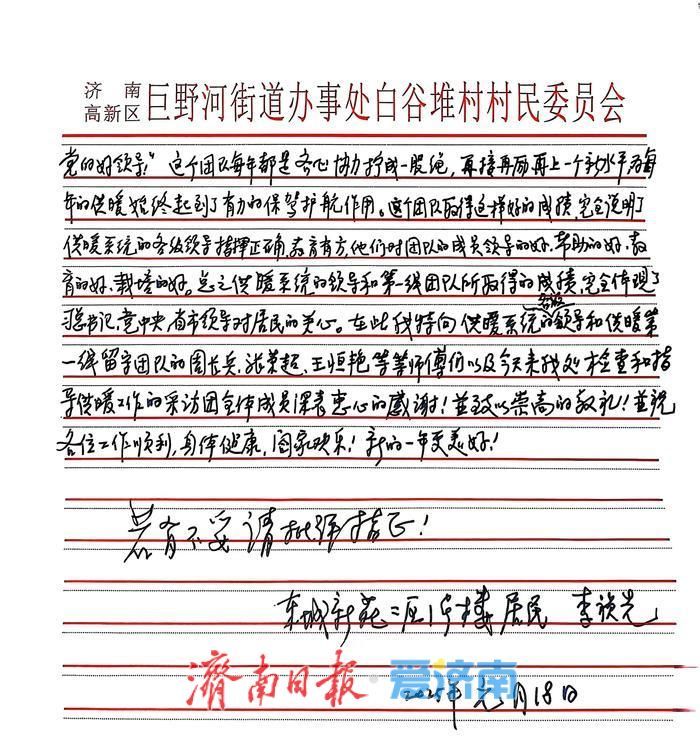 济南
高新区 巨野河街道办事处白谷堆村村民委员会
党的好领导”这个团队每年都是齐心协力拧成一股绳，再接再励再上一个新水平为每
年的供暖始终起到了有力的保驾护航作用。这个团队取得这样好的成绩，完全说明了
供暖系统的各级领导指挥正确，教育有方，他们对团队的成员领导的好，帮助的好，教
育的好，栽培的好。总之供暖系统的领导和第一线团队所取得的成绩，完全体现了
习总书记，党中央，省市领导对居民的关心。在此我特向供暖系统各级的领导和供暖第
一线留守团队的周长兵，张荣超，王恒艳等等师傅们以及今天来我处检查和指
导供暖工作的采访团全体成员深表衷心的感谢！并致以崇高的敬礼！并祝
各位工作顺利，身体健康，阖家欢乐！新的一年更美好！
若有不妥请批评指正！
东城新苑二区1号楼居民 李
济南日报·爱济南
2025年元月18日